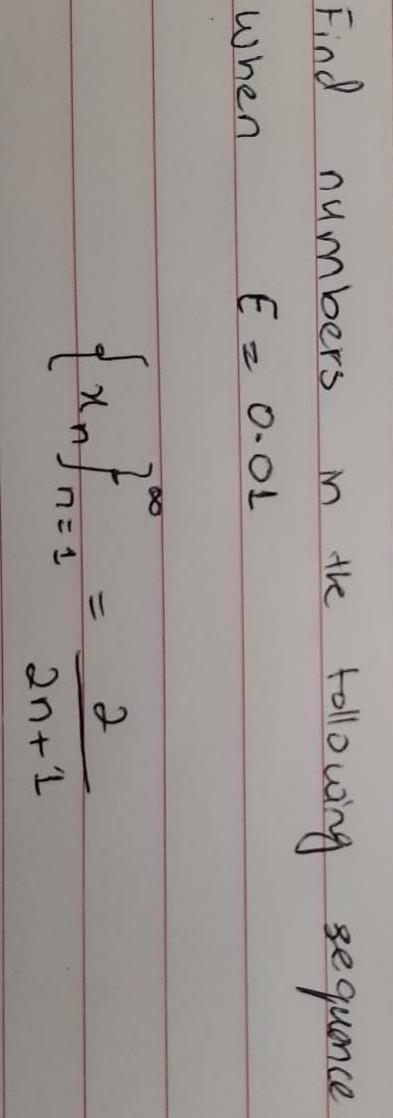 Find numbers in the following sequence
when ε = 0.01
{xn}∞n=1 = 2/2n+1